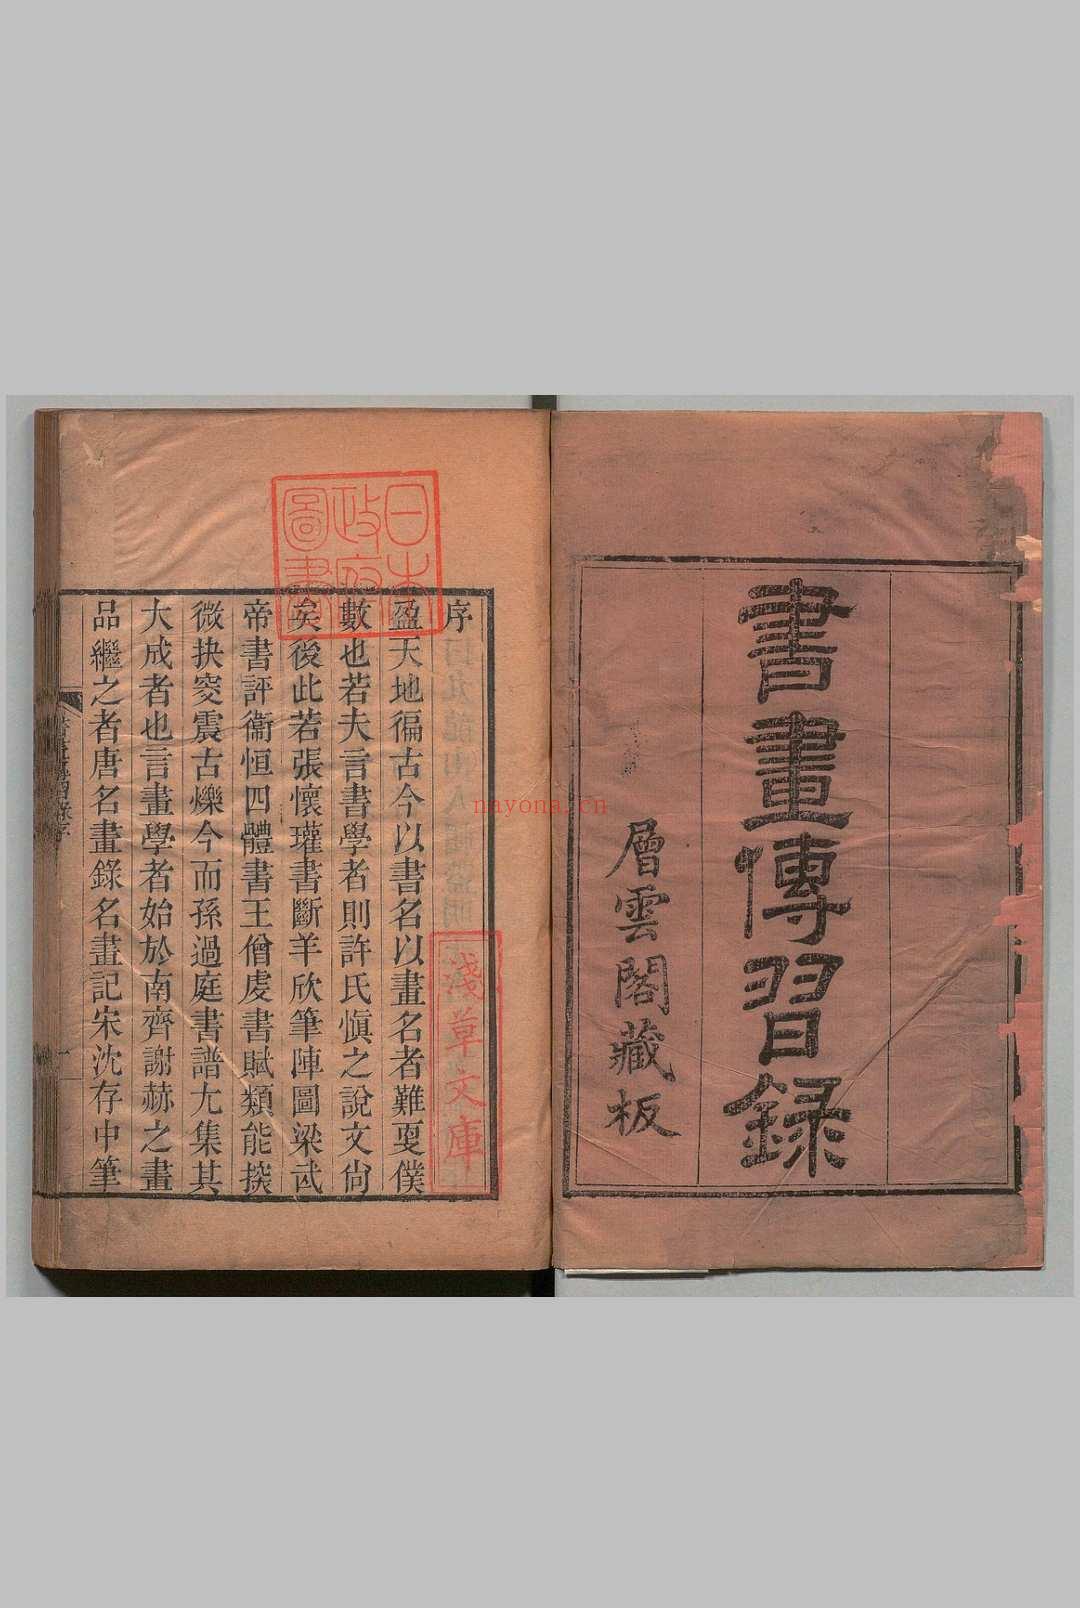 書畫傳習録
層雲閣藏板
日本政府圖書
序
盈天地徧古今以書名以畫名者難更僕
數也若夫言書學者則許氏愼之說文尙
矣後此若張懷瓘書斷羊欣筆陣圖梁武
帝書評衞恒四體書王僧虔書賦類能探
微抉窔震古爍今而孫過庭書譜尤集其
大成者也言畫學者始於南齊謝赫之畫
品繼之者唐名畫錄名畫記宋沈存中筆
淺草文庫
書畫傳習録序
一
nayona.cn